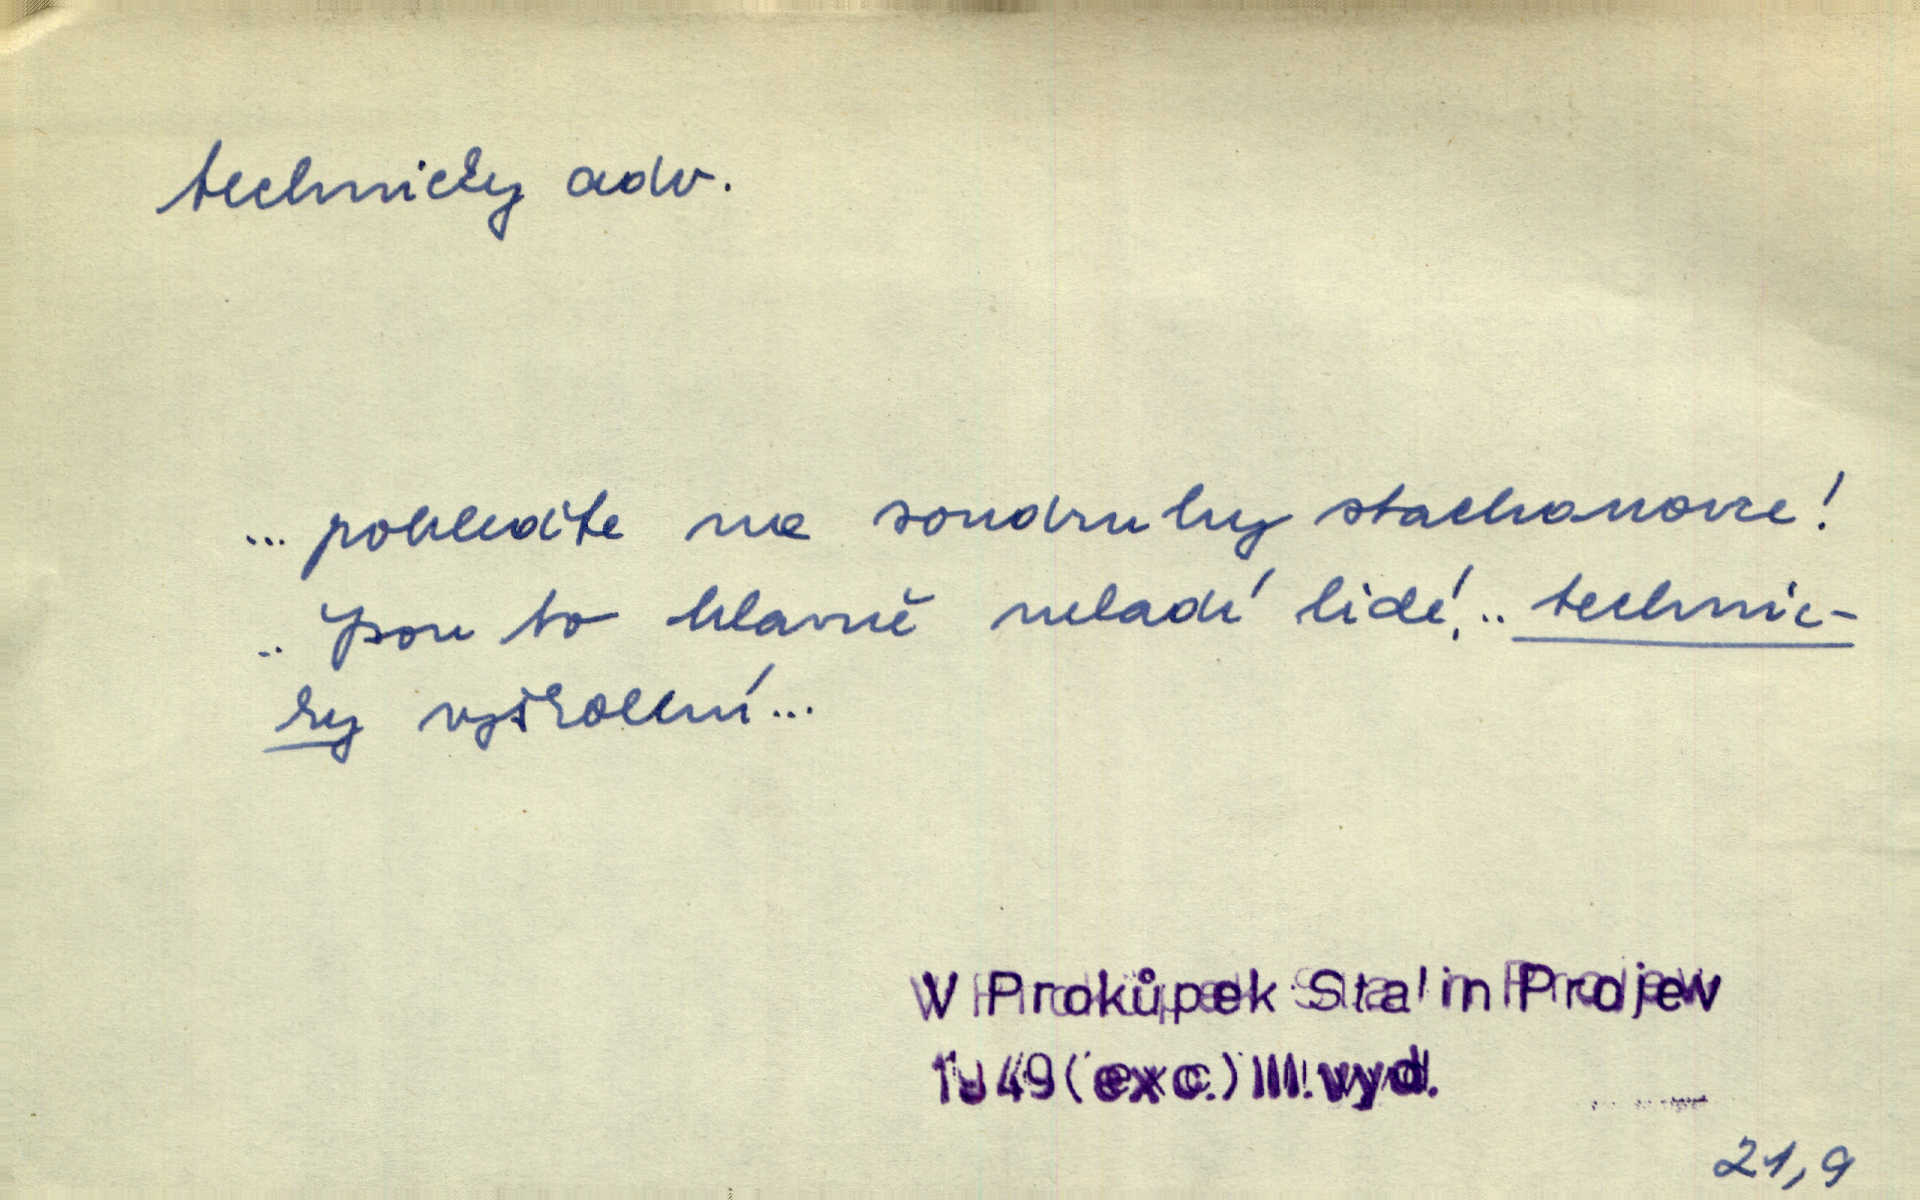 technicky adv.
... pohleďte na soudruhy stachanovce!
.. Jsou to hlavně mladí lidé, .. technic-
ky vyškolení...
V Prokůpek Stalin Projev
1949 (exc.) III. vyd.
21,9